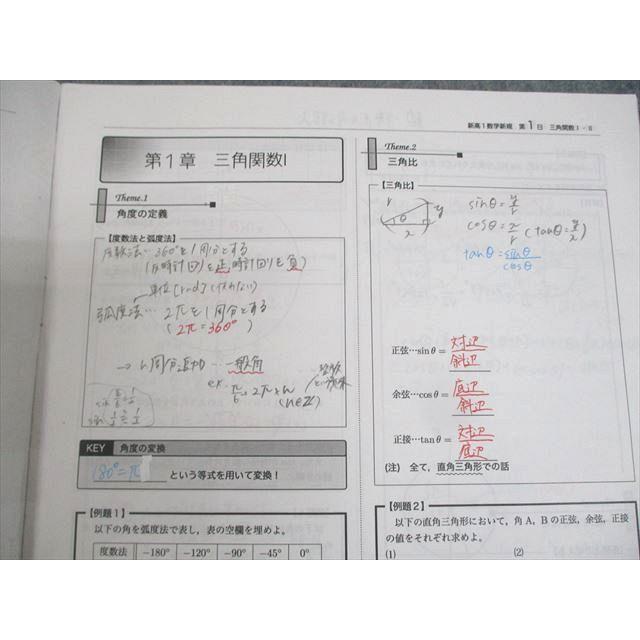 新高1数学新規 第1日 三角関数Ⅰ・Ⅱ
第1章 三角関数Ⅰ
Theme.1
角度の定義
【度数法と弧度法】
度数法… 360°を1周分とする
(反時計回りを正, 時計回りを負)
単位[rad]
弧度法… 2πを1周分とする
(2π=360°)
一般角
ex. π/6 + 2π×n
(n∈Z)
KEY 角度の変換
180°=π という等式を用いて変換！
【例題1】
以下の角を弧度法で表し，表の空欄を埋めよ。
度数法 −180° −120° −90° −45° 0°
Theme.2
三角比
【三角比】
r y θ x
sinθ=y/r
cosθ=x/r (tanθ=y/x)
tanθ=sinθ/cosθ
正弦…sinθ=対辺/斜辺
余弦…cosθ=底辺/斜辺
正接…tanθ=対辺/底辺
(注) 全て，直角三角形での話
【例題2】
以下の直角三角形において，角A，Bの正弦，余弦，正接
の値をそれぞれ求めよ。
(1) (2)